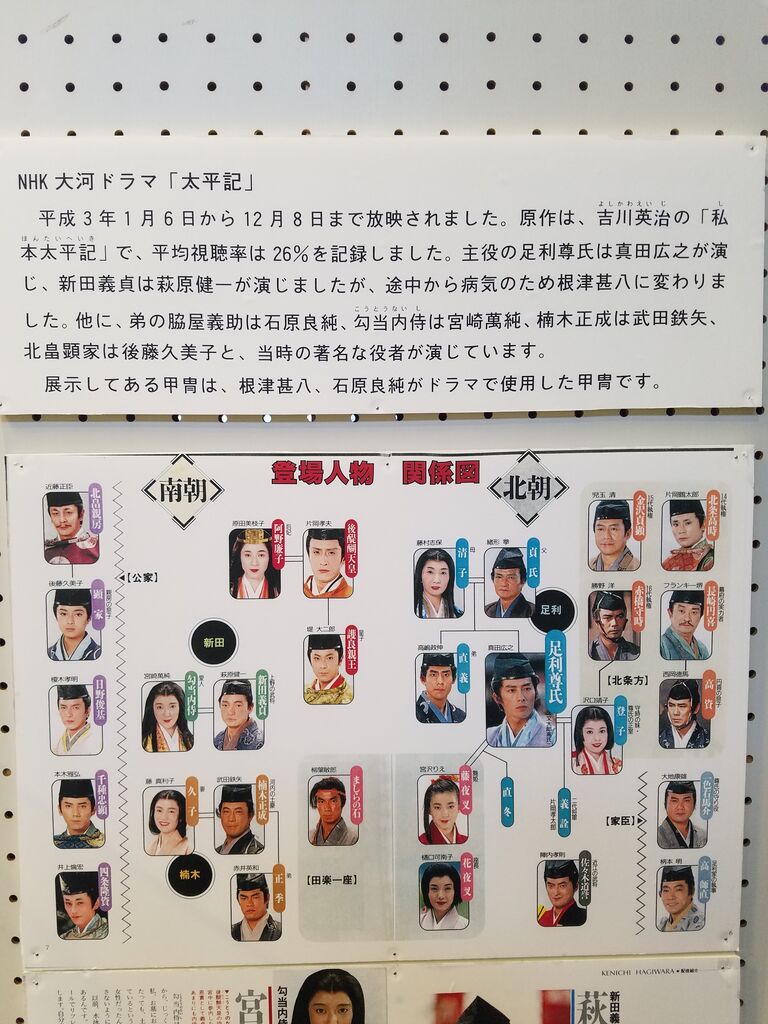 NHK 大河ドラマ「太平記」
平成3年1月6日から12月8日まで放映されました。原作は、吉川英治の「私
よしかわえいじ
し
本太平記」で、平均視聴率は26%を記録しました。主役の足利尊氏は真田広之が演
ほんたいへいき
じ、新田義貞は萩原健一が演じましたが、途中から病気のため根津甚八に変わりま
した。他に、弟の脇屋義助は石原良純、勾当内侍は宮崎萬純、楠木正成は武田鉄矢、
こうとうないし
北畠顕家は後藤久美子と、当時の著名な役者が演じています。
展示してある甲冑は、根津甚八、石原良純がドラマで使用した甲冑です。
登場人物 関係図
〈南朝〉
〈北朝〉
近藤正臣
北畠親房
後藤久美子
顕家
榎木孝明
日野俊基
本木雅弘
千種忠顕
井上倫宏
四条隆資
【公家】
原田美枝子
阿野廉子
片岡孝夫
後醍醐天皇
堤 大二郎
護良親王
新田
宮崎萬純
勾当内侍
萩原健一
新田義貞
藤 真利子
久子
妻
武田鉄矢
楠木正成
楠木
赤井英和
正季
弟
柳葉敏郎
ましらの石
【田楽一座】
藤村志保
清子
母
緒形 拳
貞氏
父
足利
高嶋政伸
直義
弟
真田広之
足利尊氏
沢口靖子
登子
宮沢りえ
藤夜叉
直冬
義詮
片岡孝太郎
樋口可南子
花夜叉
陣内孝則
佐々木道誉
児玉 清
金沢貞顕
15代執権
片岡鶴太郎
北条高時
14代執権
勝野 洋
赤橋守時
16代執権
フランキー堺
長崎円喜
【北条方】
西岡徳馬
高資
大地康雄
一色右馬介
【家臣】
柄本 明
高師直
7
6
KENICHI HAGIWARA
勾当内侍
宮
新田義
萩